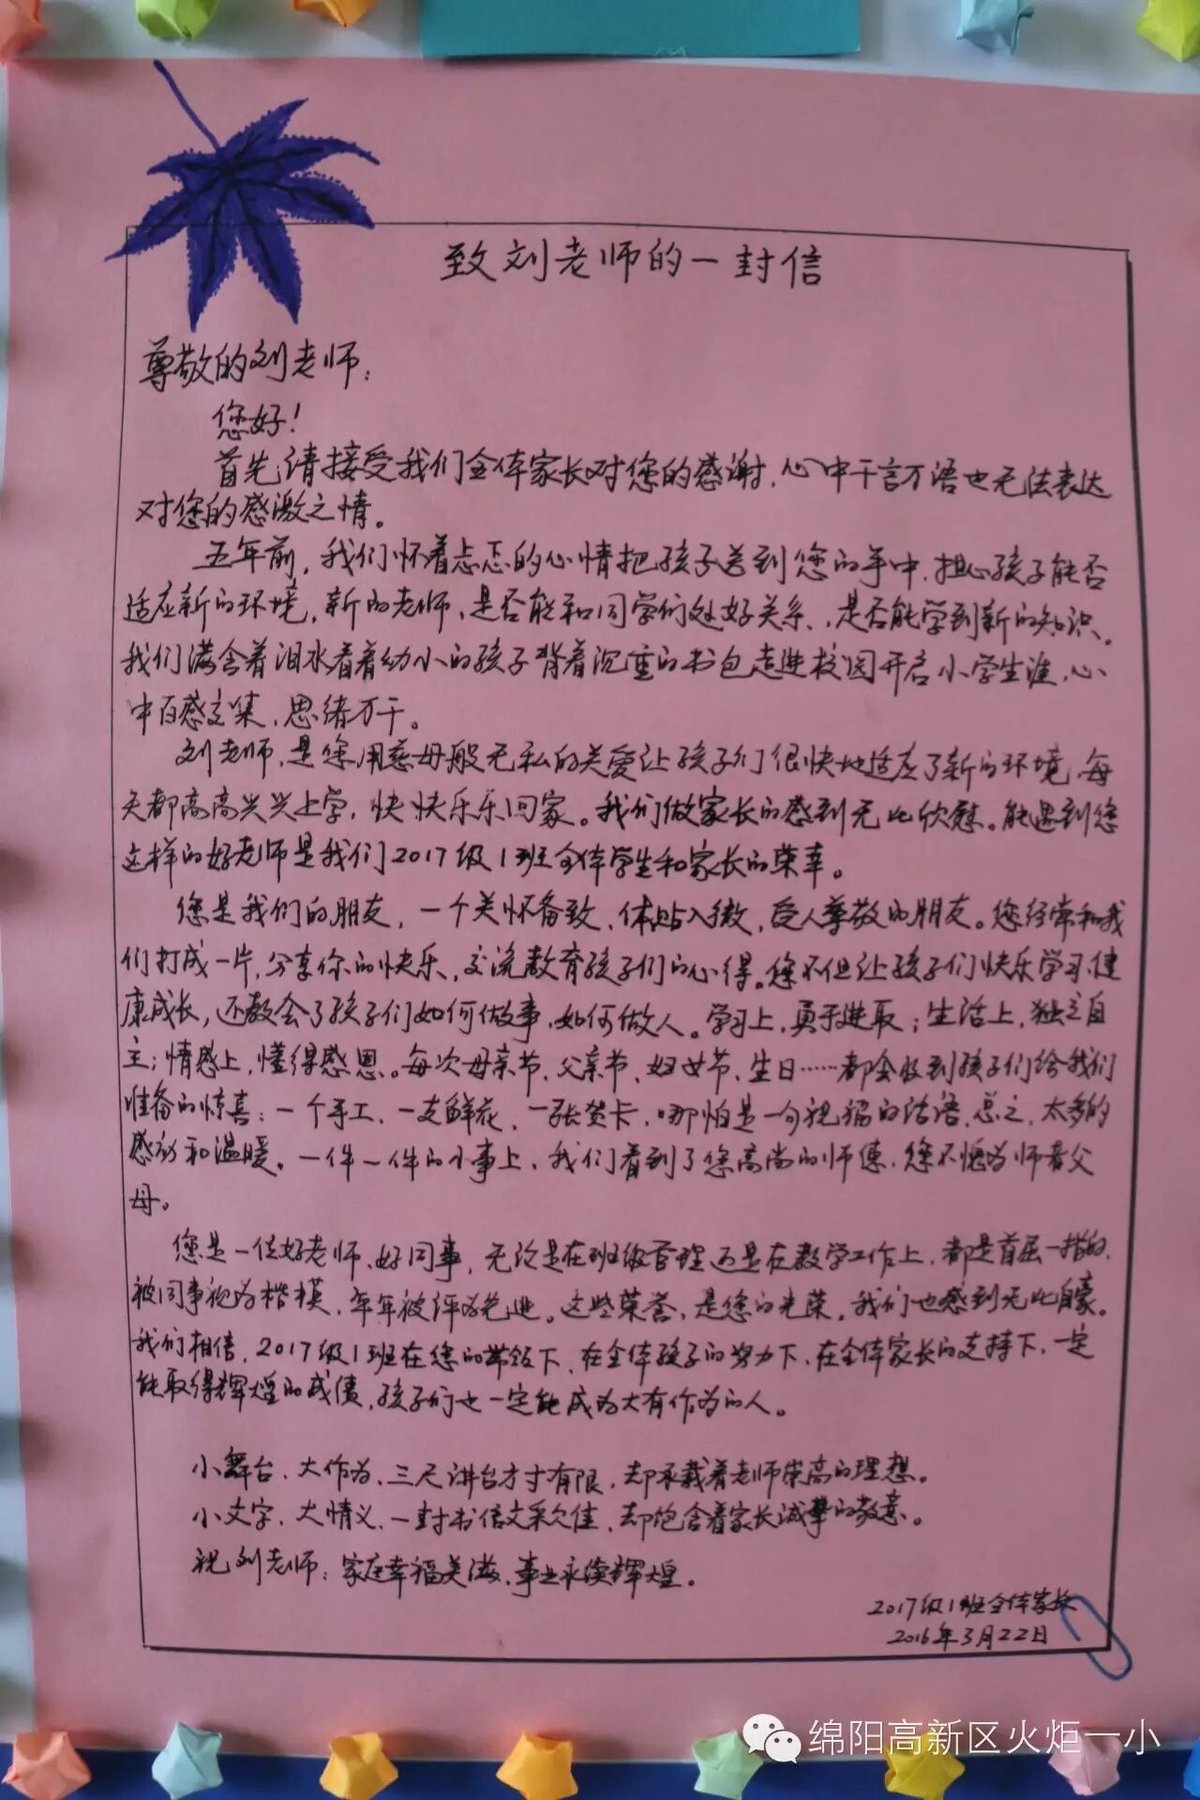 致刘老师的一封信
尊敬的刘老师：
您好！
首先请接受我们全体家长对您的感谢，心中千言万语也无法表达
对您的感激之情。
五年前，我们怀着忐忑的心情把孩子送到您的手中，担心孩子能否
适应新的环境，新的老师、是否能和同学们处好关系、，是否能学到新的知识。
我们满含着泪水看着幼小的孩子背着沉重的书包走进校园开启小学生涯，心
中百感交集，思绪万千。
刘老师，是您用慈母般无私的关爱让孩子们很快地适应了新的环境，每
天都高高兴兴上学，快快乐乐回家。我们做家长的感到无比欣慰。能遇到您
这样的好老师是我们2017级1班全体学生和家长的荣幸。
您是我们的朋友，一个关怀备致，体贴入微，受人尊敬的朋友。您经常和我
们打成一片，分享你的快乐，交流教育孩子们的心得。您不但让孩子们快乐学习、健
康成长，还教会了孩子们如何做事、如何做人。学习上，勇于进取；生活上，独立自
主；情感上，懂得感恩。每次母亲节、父亲节、妇女节、生日……都会收到孩子们给我们
准备的惊喜：一个手工、一支鲜花、一张贺卡、哪怕是一句祝福的话语，总之，太多的
感动和温暖。一件一件的小事上，我们看到了您高尚的师德，您不愧为师者父
母。
您是一位好老师、好同事，无论是在班级管理还是在教学工作上，都是首屈一指的，
被同事视为楷模，年年被评为先进。这些荣誉，是您的光荣，我们也感到无比自豪。
我们相信，2017级1班在您的带领下，在全体孩子的努力下，在全体家长的支持下，一定
能取得辉煌的成绩，孩子们也一定能成为大有作为的人。
小舞台、大作为、三尺讲台才寸有限，却承载着老师崇高的理想。
小文字、大情义、一封书信文采欠佳，却饱含着家长诚挚的敬意。
祝刘老师：家庭幸福美满、事业永续辉煌。
2017级1班全体家长
2016年3月22日
绵阳高新区火炬一小